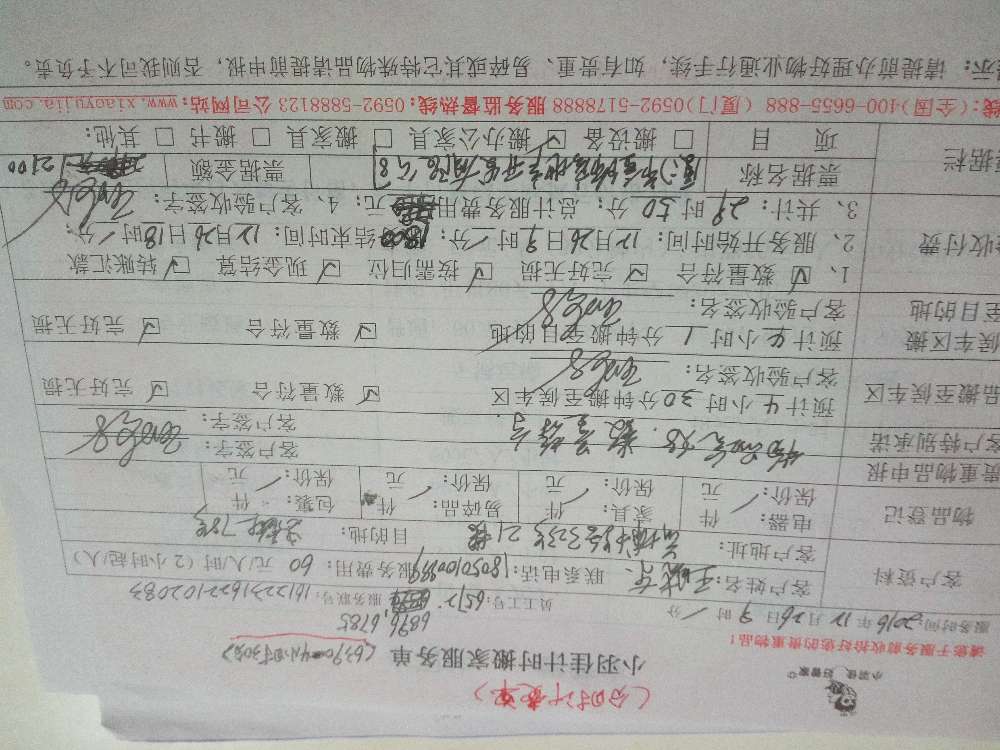 小羽佳 好管家
小羽佳计时搬家服务单
请您于服务前收拾好您的贵重物品!
6896, 6785
服务时间: 2016 年 12 月 26 日 9 时 / 分
员工工号: 6512 服务联号: 1612231622102083
客户资料
客户姓名: 联系电话: 18050100889 服务费用: 60 元/人/时(2小时/起/人)
客户地址: 目的地:
物品登记
电器: 件 家具: 件 易碎品: 件 包裹: 件
保价: 元 保价: 元 保价: 元 保价: 元
贵重物品申报
客户签字:
客户特别承诺
物品完好. 数量符合 客户签字:
品搬至候车区
预计 4 小时 30 分钟搬至候车区 ☑ 数量符合 ☑ 完好无损
客户验收签名:
候车区搬至目的地
预计 4 小时 1 分钟搬至目的地 ☑ 数量符合 ☑ 完好无损
客户验收签名:
收费
1、☑ 数量符合 ☑ 完好无损 ☑ 按需归位 ☑ 现金结算 ☑ 转账汇款
2、服务开始时间: 12 月 26 日 9 时 / 分; 结束时间: 12 月 26 日 18 时 / 分;
3、共计: 29 时 50 分; 总计服务费用 元; 4、客户验收签字:
票据栏
票据名称 票据金额 2100
项目 □ 搬设备 ☑ 搬办公家具 □ 搬家具 □ 搬书 □ 其他:
线:(全国)400-6655-888 (厦门)0592-5178888 服务监督热线:0592-5888123 公司网站:www.xiaoyujia.com
示: 请提前办理好物业通行手续, 如有贵重、易碎或其它特殊物品请提前申报, 否则我司不予负责。